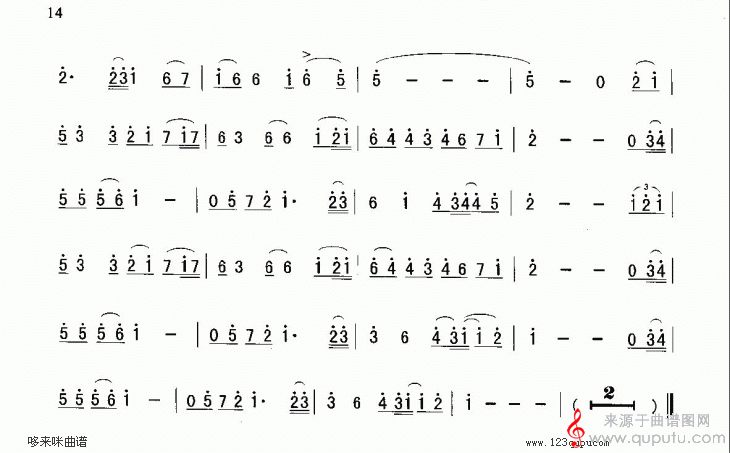 14
2· 2 3 1 6 7 | 1 6 6 1 > 6 5 | 5 – – – | 5 – 0 2 1 |
5 3 3 2 1 7 1 7 | 6 3 6 6 1 2 1 | 6 4 4 3 4 6 7 1 | 2 – – 0 3 4 |
5 5 5 6 1 – | 0 5 7 2 1· 2 3 | 6 1 4 3 4 4 5 | 2 – – 3 1 2 1 |
5 3 3 2 1 7 1 7 | 6 3 6 6 1 2 1 | 6 4 4 3 4 6 7 1 | 2 – – 0 3 4 |
5 5 5 6 1 – | 0 5 7 2 1· 2 3 | 3 6 4 3 1 1 2 | 1 – – 0 3 4 |
5 5 5 6 1 – | 0 5 7 2 1· 2 3 | 3 6 4 3 1 1 2 | 1 – – – | ( 2 ) ‖
哆来咪曲谱
www.123qupu.com
来源于曲谱图网
www.qupu​tu.com